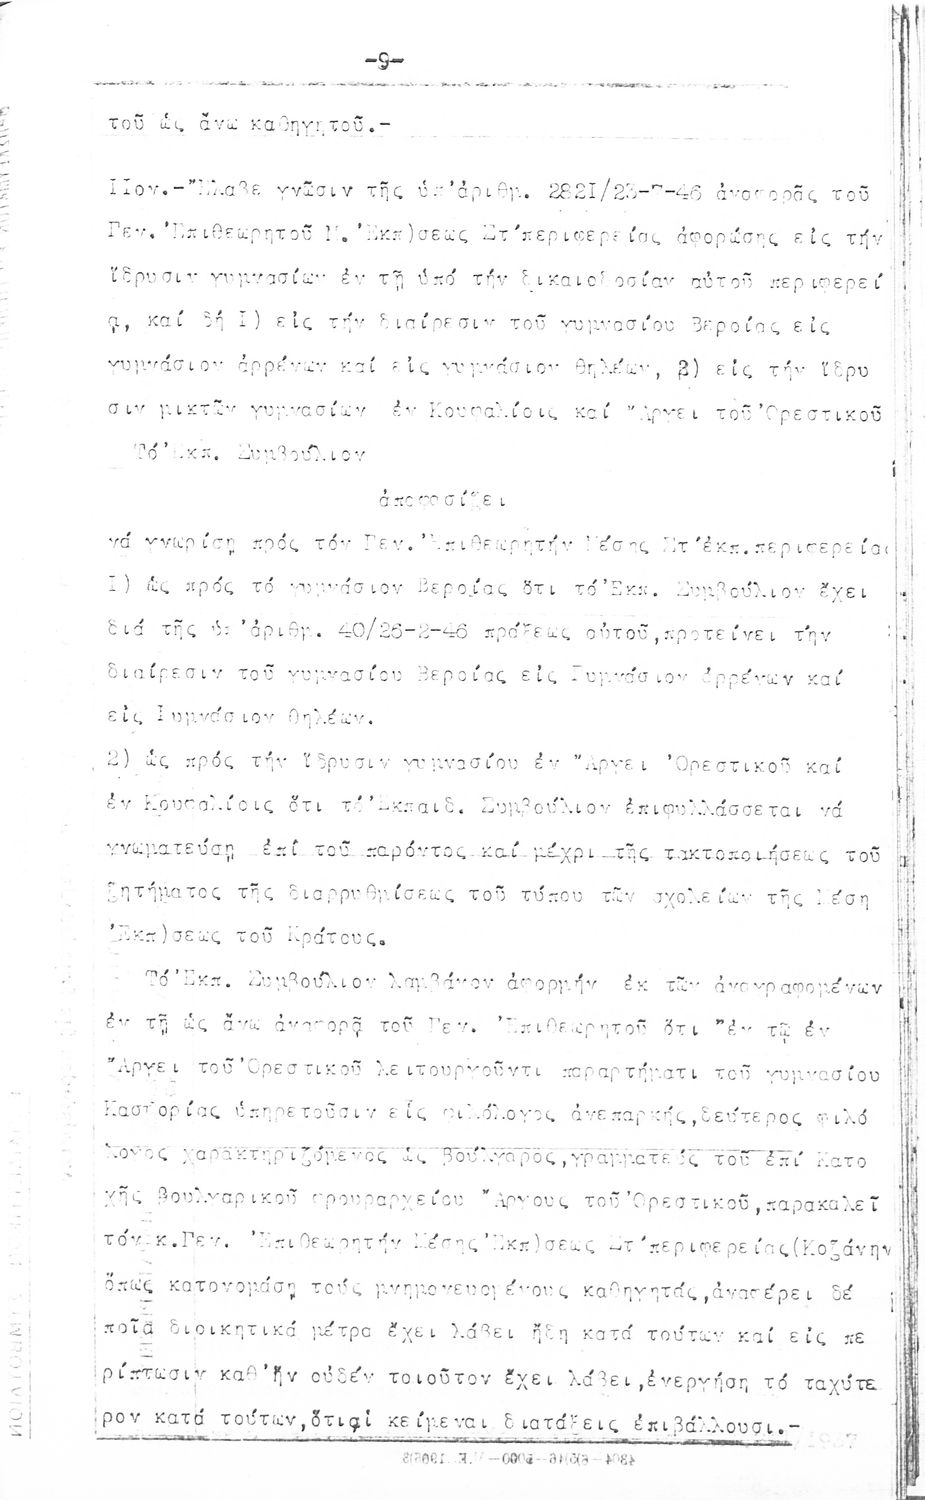 -9-
τοῦ ὡς ἄνω καθηγητοῦ.-
IIον.-"Ελαβε γνῶσιν τῆς ὑπ'ἀριθμ. 282I/23- -46 ἀναφορᾶς τοῦ
Γεν.'Επιθεωρητοῦ Μ.'Εκπ)σεως Στ'περιφερείας ἀφορώσης εἰς τήν
ἵδρυσιν γυμνασίων ἐν τῇ ὑπό τήν δικαιοδοσίαν αὐτοῦ περιφερεί
ᾳ, καί δή I) εἰς τήν διαίρεσιν τοῦ γυμνασίου Βεροίας εἰς
γυμνάσιον ἀρρένων καί εἰς γυμνάσιον θηλέων, 2) εἰς τήν ἵδρυ
σιν μικτῶν γυμνασίων ἐν Κουφαλίοις καί "Αργει τοῦ'Ορεστικοῦ
Τό'Εκπ. Συμβούλιον
ἀποφασίζει
νά γνωρίσῃ πρός τόν Γεν.'Επιθεωρητήν Μέσης Στ'ἐκπ.περιφερείας
I) Ὡς πρός τό γυμνάσιον Βεροίας ὅτι τό'Εκπ. Συμβούλιον ἔχει
διά τῆς ὑπ'ἀριθμ. 40/26-2-46 πράξεως αὐτοῦ,προτείνει τήν
διαίρεσιν τοῦ γυμνασίου Βεροίας εἰς Γυμνάσιον ἀρρένων καί
εἰς Γυμνάσιον θηλέων.
2) ὡς πρός τήν ἵδρυσιν γυμνασίου ἐν "Αργει 'Ορεστικοῦ καί
ἐν Κουφαλίοις ὅτι τό'Εκπαιδ. Συμβούλιον ἐπιφυλλάσσεται νά
γνωματεύσῃ ἐπί τοῦ παρόντος καί μέχρι τῆς τακτοποιήσεως τοῦ
ζητήματος τῆς διαρρυθμίσεως τοῦ τύπου τῶν σχολείων τῆς Μέση
'Εκπ)σεως τοῦ Κράτους.
Τό'Εκπ. Συμβούλιον λαμβάνον ἀφορμήν ἐκ τῶν ἀναγραφομένων
ἐν τῇ ὡς ἄνω ἀναφορᾷ τοῦ Γεν. 'Επιθεωρητοῦ ὅτι "ἐν τῷ ἐν
"Αργει τοῦ'Ορεστικοῦ λειτουργοῦντι παραρτήματι τοῦ γυμνασίου
Καστορίας ὑπηρετοῦσιν εἷς φιλόλογος ἀνεπαρκής,δεύτερος φιλό
λογος χαρακτηριζόμενος ὡς βούλγαρος,γραμματεύς τοῦ ἐπί Κατο
χῆς βουλγαρικοῦ φρουραρχείου "Αργους τοῦ'Ορεστικοῦ,παρακαλεῖ
τόν κ.Γεν. 'Επιθεωρητήν Μέσης'Εκπ)σεως Στ'περιφερείας(Κοζάνην
ὅπως κατονομάσῃ τούς μνημονευομένους καθηγητάς,ἀναφέρει δέ
ποῖα διοικητικά μέτρα ἔχει λάβει ἤδη κατά τούτων καί εἰς πε
ρίπτωσιν καθ'ἥν οὐδέν τοιοῦτον ἔχει λάβει,ἐνεργήσῃ τό ταχύτε
ρον κατά τούτων,ὅτι αἱ κείμεναι διατάξεις ἐπιβάλλουσι.-